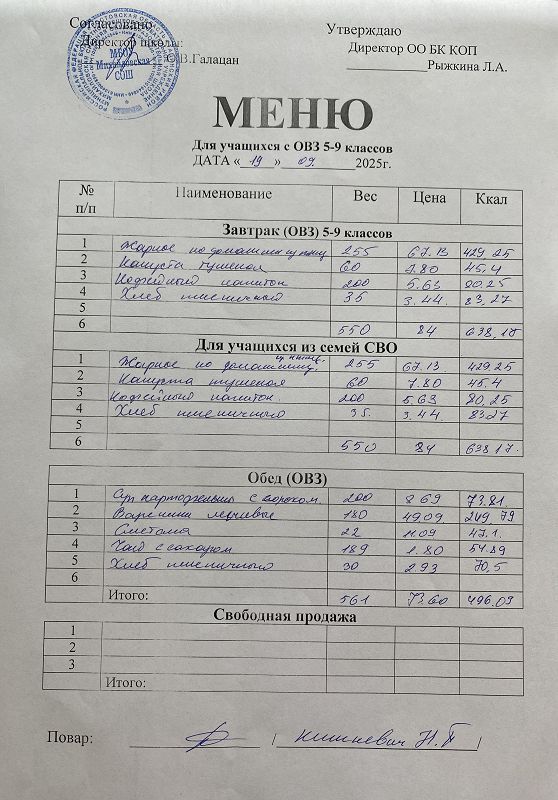 Согласовано
Утверждаю
Директор школы:
Директор ОО БК КОП
В.Галацан
Рыжкина Л.А.
МБОУ
Михайловская
СОШ
МЕНЮ
Для учащихся с ОВЗ 5-9 классов
ДАТА « 19 » 09 2025г.
№ п/п Наименование Вес Цена Ккал
Завтрак (ОВЗ) 5-9 классов
1 Жаркое по домашнему 255 67.13 429.25
2 Капуста тушеная 60 7.80 45.4
3 Кофейный напиток 200 5.63 80.25
4 Хлеб пшеничный 35 3.44 83,27
5
6 550 84 638,17
Для учащихся из семей СВО
1 Жаркое по домашнему 255 67.13 429.25
2 Капуста тушеная 60 7.80 45.4
3 Кофейный напиток 200 5.63 80.25
4 Хлеб пшеничный 35 3.44 83.27
5
6 550 84 638.17
Обед (ОВЗ)
1 Суп картофельный с горохом 200 8 69 73.81
2 Вареники ленивые 180 49.09 249,79
3 Сметана 22 11.09 47.1
4 Чай с сахаром 189 1.80 54.89
5 Хлеб пшеничного 30 2 93 70,5
6
Итого: 561 73.60 496.09
Свободная продажа
1
2
3
Итого:
Повар: / Н.П /